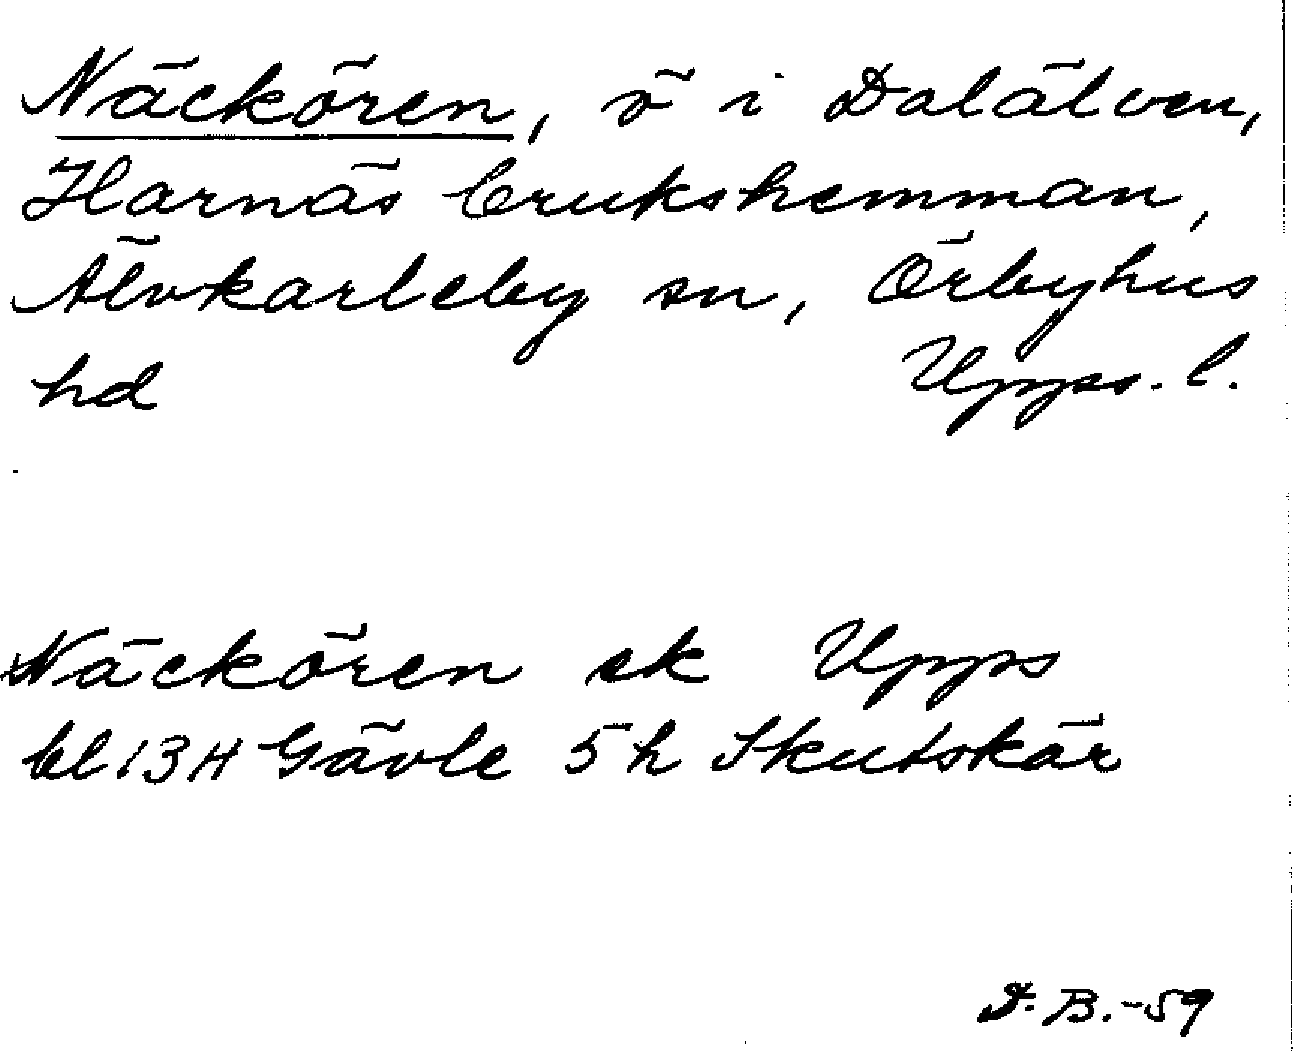 Näckören, ö i Dalälven,
Harnäs brukshemman,
Älvkarleby sn, Örbyhus
hd Upps. l.
Näckören ek Upps
bl 13H Gävle 5h Skutskär
D.B.-59